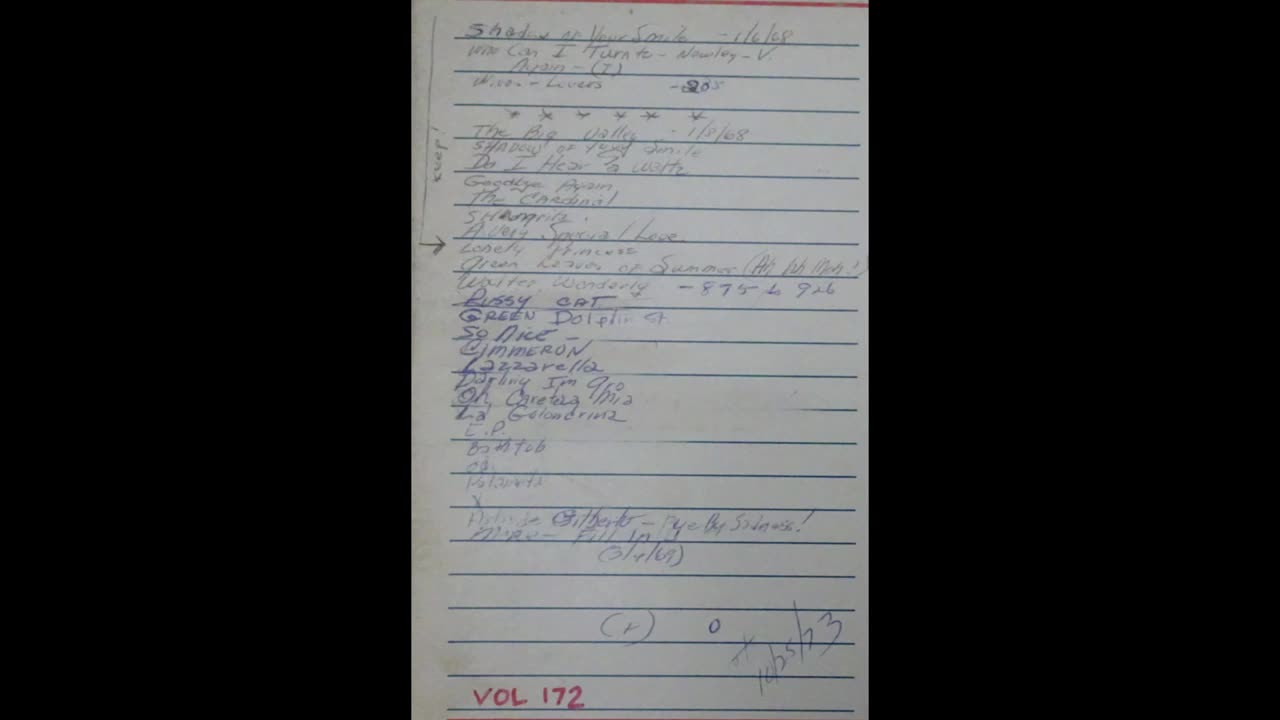 Shadow of Your Smile - 1/6/68
Who Can I Turn to - Newley - V.
Again - (I)
Wives - Lovers - 205
* * * * * *
The Big Valley - 1/8/68
SHADOW of Your Smile
Do I Hear a Waltz
Goodbye Again
The CARdinal
A Very Special Love
Lonely Princess
Green Leaves of Summer (Ah
Walter Wonderly - 875 to 926
PUSSY CAT
GREEN Dolphin St.
SO NICE -
CIMMERON
Lazzarella
Darling Im
Oh, Caretta Mia
La Golondrina
E.P.
Bathtub
X
Astrude Gilberto - Bye Bye Sadness!
MORE - Fill In
(3/4/69)
(r) O
* 10/25/73
keep!
VOL 172